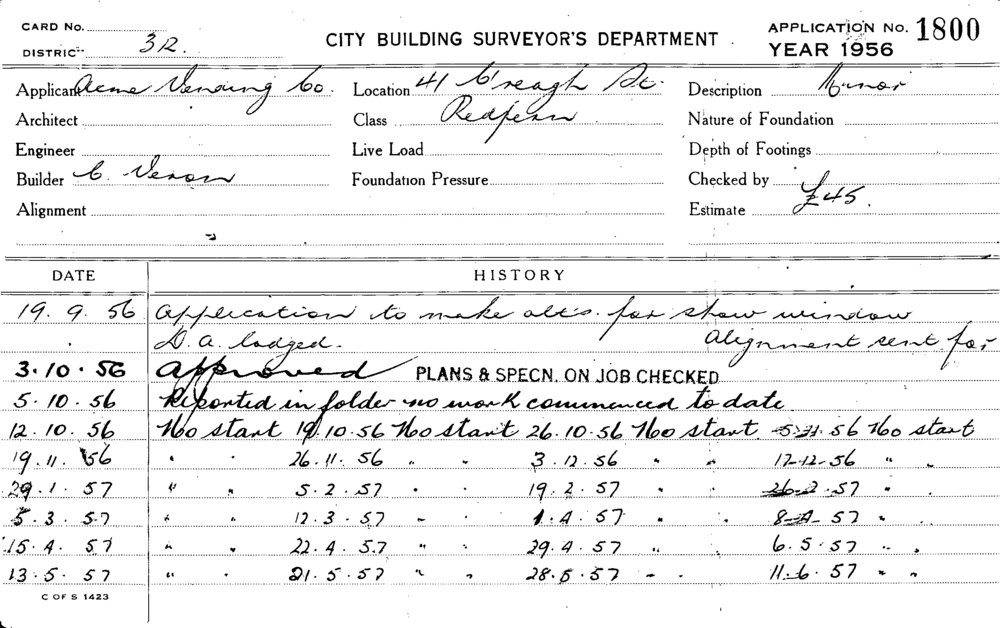 CARD No.
DISTRICT 3R.
CITY BUILDING SURVEYOR'S DEPARTMENT
APPLICATION No. 1800
YEAR 1956
Applicant Acme Vending Co. Location 41 C'reagh St. Description Minor
Architect Class Redfern Nature of Foundation
Engineer Live Load Depth of Footings
Builder C. Veron Foundation Pressure Checked by
Alignment Estimate £45.
DATE HISTORY
19. 9. 56 Application to make alts. for show window
D.A. lodged. Alignment sent for
3.10.56 Approved PLANS & SPECN. ON JOB CHECKED
5.10.56 Reported in folder no work commenced to date
12.10.56 No start 19.10.56 No start 26.10.56 No start 5.11.56 No start
19.11.56 " " 26.11.56 " " 3.12.56 " " 17-12-56 " "
29.1.57 " " 5.2.57 " " 19.2.57 " " 26.2.57 " "
5.3.57 " " 12.3.57 " " 1.4.57 " " 8-4-57 " "
15.4.57 " " 22.4.57 " " 29.4.57 " " 6.5.57 " "
13.5.57 " " 21.5.57 " " 28.5.57 " " 11.6.57 " "
C OF S 1423